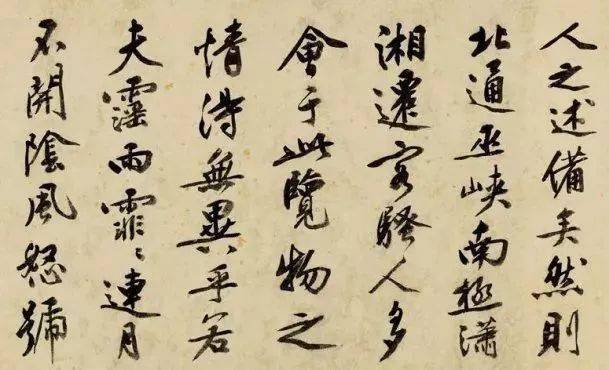 人之述備矣然則
北通巫峽南極瀟
湘遷客騷人多
會于此覽物之
情得無異乎若
夫霪雨霏〻連月
不開陰風怒號